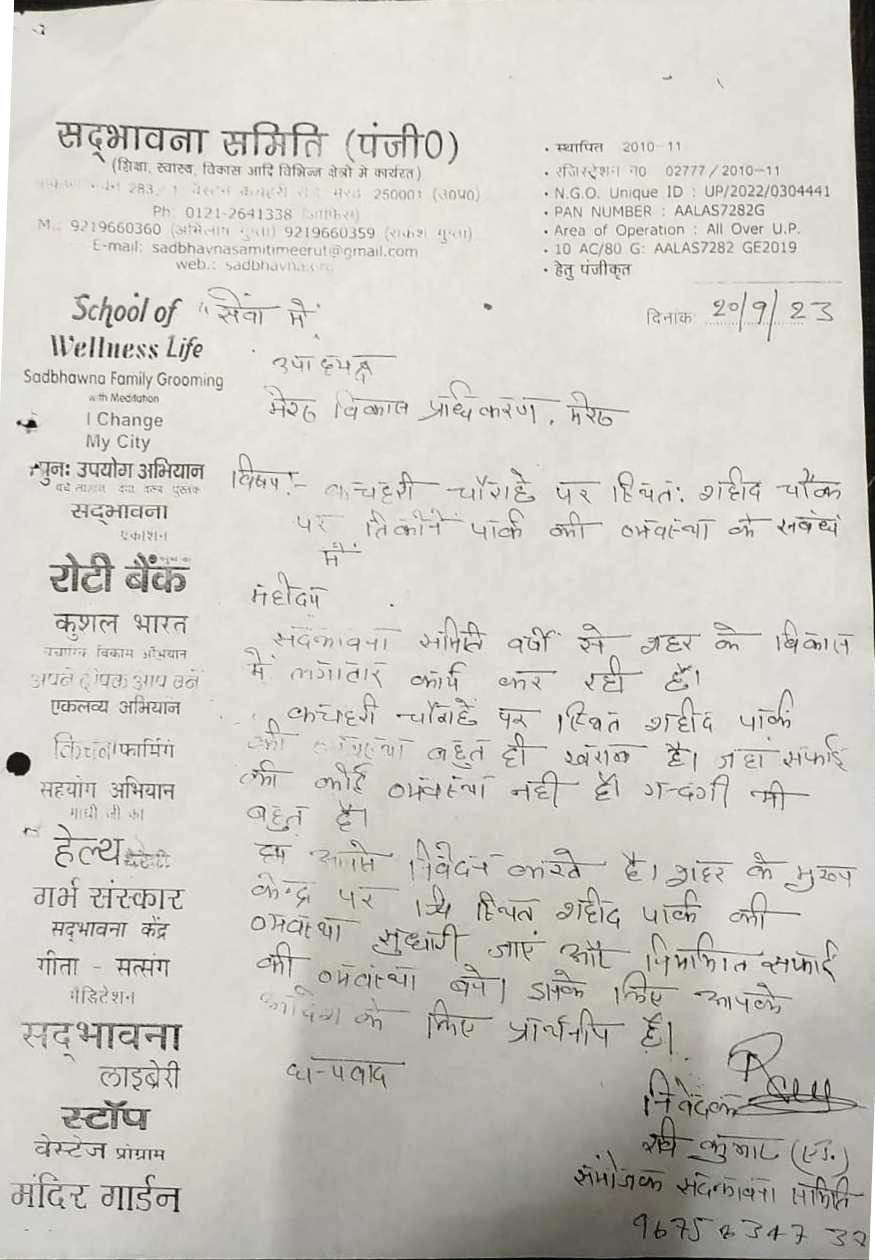 सद्भावना समिति (पंजी0)
(शिक्षा, स्वास्थ, विकास आदि विभिन्न क्षेत्रो मे कार्यरत)
283, 250001 (उ0प्र0)
Ph: 0121-2641338
9219660360 9219660359
E-mail: sadbhavnasamitimeerut@gmail.com
web.: sadbhavna.org
• स्थापित 2010-11
• रजिस्ट्रेशन न0 02777/2010-11
• N.G.O. Unique ID : UP/2022/0304441
• PAN NUMBER : AALAS7282G
• Area of Operation : All Over U.P.
• 10 AC/80 G: AALAS7282 GE2019
• हेतु पंजीकृत
दिनांक 20/9/23
School of
Wellness Life
Sadbhawna Family Grooming
with Meditation
I Change
My City
पुनः उपयोग अभियान
सद्भावना
एकाशन
रोटी बैंक
कुशल भारत
अपने दीपक आप बने
एकलव्य अभियान
किचन फार्मिंग
सहयोग अभियान
गांधी जी का
हेल्थ
गर्भ संस्कार
सद्भावना केंद्र
गीता - सत्संग
मैडिटेशन
सद्भावना
लाइब्रेरी
स्टॉप
वेस्टेज प्रोग्राम
मंदिर गार्डन
सेवा में
उपाध्यक्ष
मेरठ विकास प्राधिकरण, मेरठ
विषय:- कचहरी चौराहे पर स्थित: शहीद चौक
पर तिकोने पार्क की व्यवस्था के सबंध
में
महोदय
सदभावना समिति वर्षो से शहर के विकास
में लगातार कार्य कर रही है।
कचहरी चौराहे पर स्थित शहीद पार्क
की व्यवस्था बहुत ही खराब है। जहां सफाई
की कोई व्यवस्था नही है। गन्दगी भी
बहुत है।
हम आपसे निवेदन करते है। शहर के मुख्य
केन्द्र पर स्थित शहीद पार्क की
व्यवस्था सुधारी जाएं और नियमित सफाई
की व्यवस्था बने। इसके लिए आपके
के लिए प्रार्थनीय है।
धन्यवाद
निवेदक
रवि कुमार
संयोजक सदभावना समिति